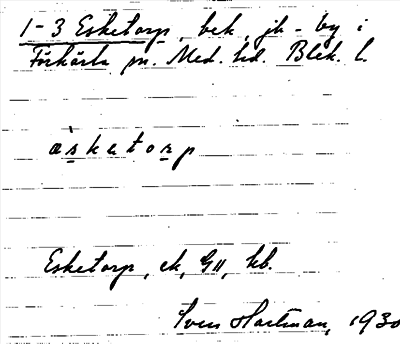 1-3 Esketorp, bek, jb-by i
Förkärla sn. Med. hd. Blek. l.
äsketorp
Esketorp, ek, GII, kb.
Sven Hartman, 1930